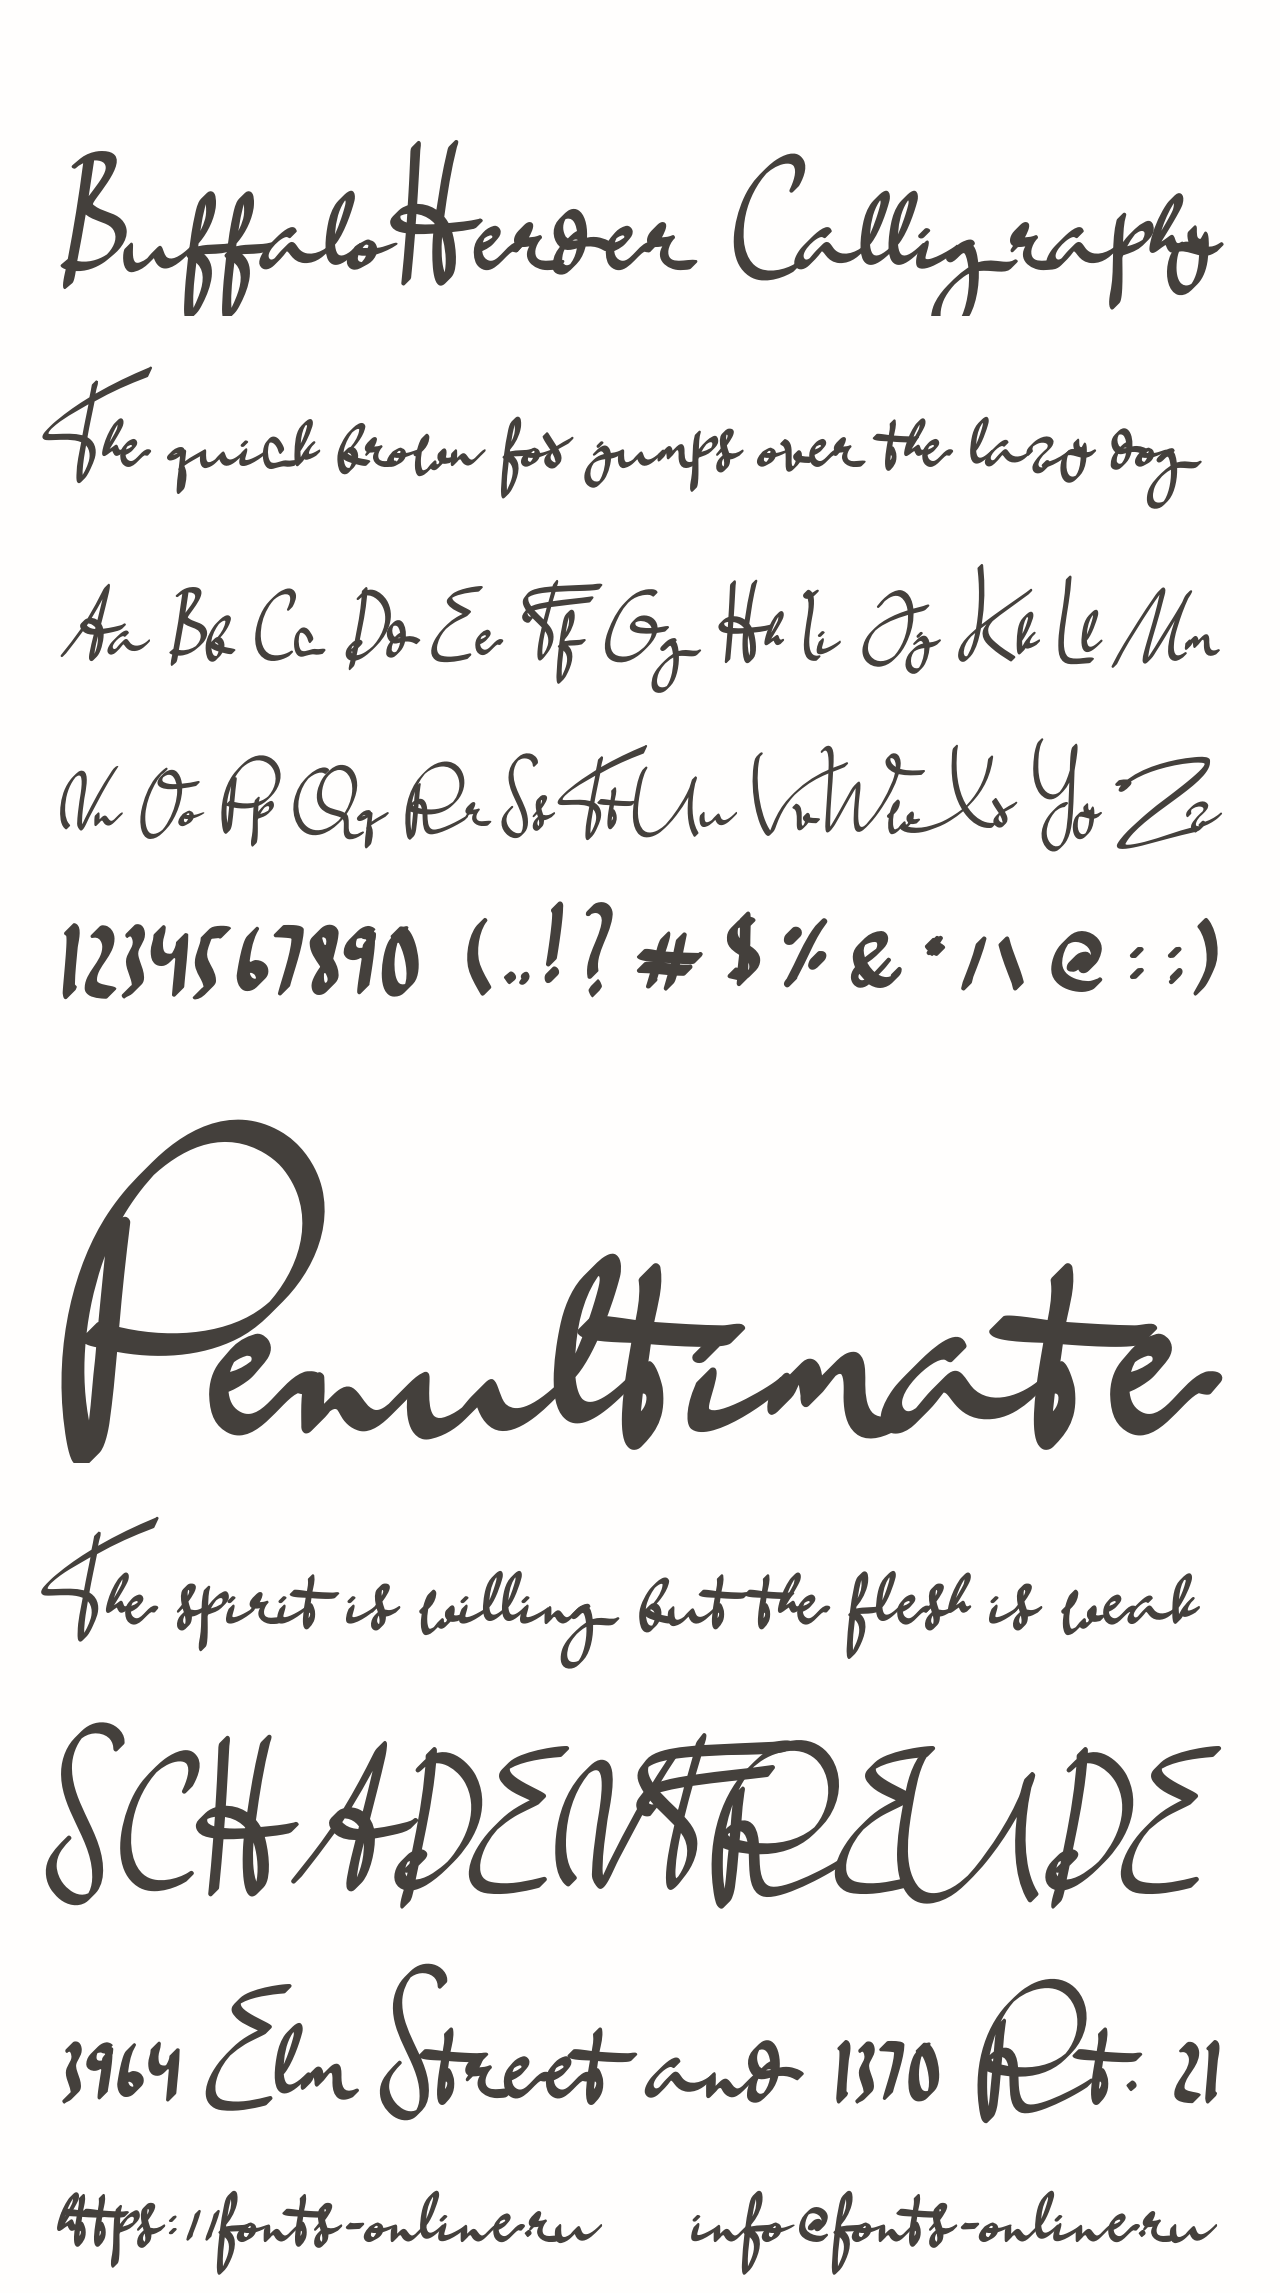 BuffaloHerder Calligraphy
The quick brown fox jumps over the lazy dog
Aa Bb Cc Dd Ee Ff Gg Hh Ii Jj Kk Ll Mm
Nn Oo Pp Qq Rr Ss Tt Uu Vv Ww Xx Yy Zz
1234567890 (.,!? # $ % & * / \ @ : ;)
Penultimate
The spirit is willing but the flesh is weak
SCHADENFREUDE
3964 Elm Street and 1370 Rt. 21
https://fonts-online.ru info@fonts-online.ru